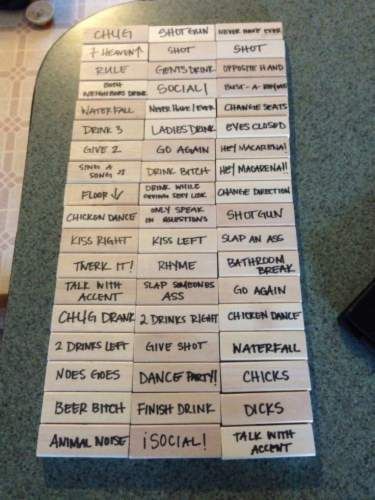 CHUG SHOTGUN NEVER HAVE EVER
7 HEAVEN↑ SHOT SHOT
RULE GENTS DRINK OPPOSITE HAND
BOTH NEIGHBORS DRINK SOCIAL! BUST-A-RHYME
WATERFALL NEVER HAVE I EVER CHANGE SEATS
DRINK 3 LADIES DRINK EYES CLOSED
GIVE 2 GO AGAIN HEY MACARENA!
SING A SONG ♫ DRINK BITCH HEY MACARENA!!
FLOOR ↓ DRINK WHILE GIVING SEXY LOOK CHANGE DIRECTION
CHICKEN DANCE ONLY SPEAK IN QUESTIONS SHOTGUN
KISS RIGHT KISS LEFT SLAP AN ASS
TWERK IT! RHYME BATHROOM BREAK
TALK WITH ACCENT SLAP SOMEONES ASS GO AGAIN
CHUG DRANK 2 DRINKS RIGHT CHICKEN DANCE
2 DRINKS LEFT GIVE SHOT WATERFALL
NOES GOES DANCE PARTY!! CHICKS
BEER BITCH FINISH DRINK DICKS
ANIMAL NOISE ¡SOCIAL! TALK WITH ACCENT